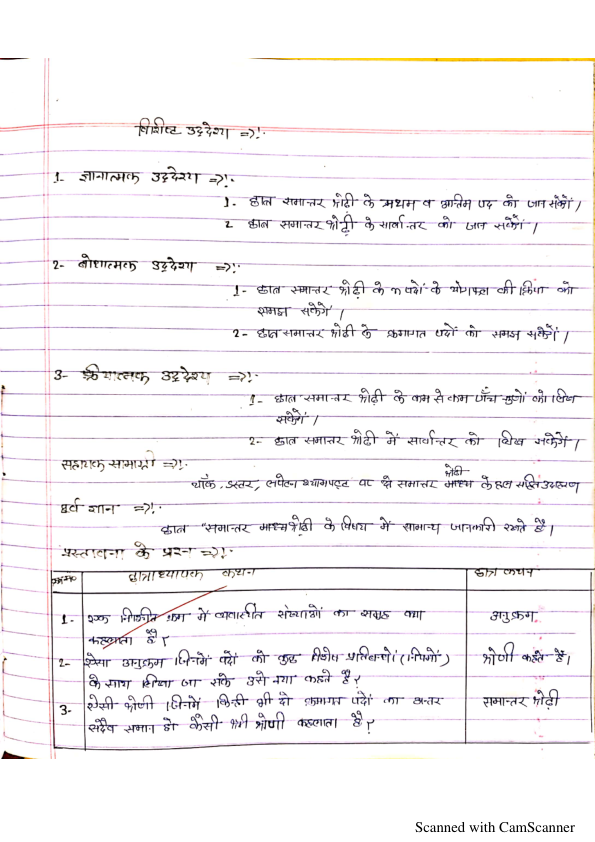 विशिष्ट उद्देश्य =>!.
1- ज्ञानात्मक उद्देश्य =>!.
1- छात्र समान्तर श्रेढी के प्रथम व अन्तिम पद को जान सकेगें /
2 छात्र समान्तर श्रेढी के सार्वान्तर को जान सकेगें /
2- बोधात्मक उद्देश्य =>!.
1- छात्र समान्तर श्रेढी के n पदों के योगफल की क्रिया को
समझ सकेगें /
2- छात्र समान्तर श्रेढी के क्रमागत पदों को समझ सकेगें /
3- क्रीयात्मक उद्देश्य =>!.
1- छात्र समान्तर श्रेढी के कम से कम पाँच गुणों को लिख
सकेगें /
2- छात्र समान्तर श्रेढी में सार्वान्तर को लिख सकेगें /
सहायक सामाग्री =>!.
श्रेढी
चॉक, डस्टर, लपेटन श्यामपट्ट पर दो समान्तर माध्य के हल सहित उदाहरण
पूर्व ज्ञान =>!.
छात्र "समान्तर माध्य श्रेढी के विषय में सामान्य जानकारी रखते हैं |
प्रस्तावना के प्रश्न =>!.
क्र०सं० छात्राध्यापक कथन छात्र कथन
1- एक निश्चित क्रम में व्यवस्थित संख्याओं का समूह क्या अनुक्रम
कहलाता है ?
2- ऐसा अनुक्रम जिनमें पदों को कुछ विशेष प्रतिबन्धों (नियमों) श्रेणी कहते हैं |
के साथ लिखा जा सके उसे क्या कहते हैं ?
3- ऐसी श्रेणी जिनमें किन्ही भी दो क्रमागत पदों का अन्तर समान्तर श्रेढी
सदैव समान हो कैसी श्रेणी कहलाता है ?
Scanned with CamScanner